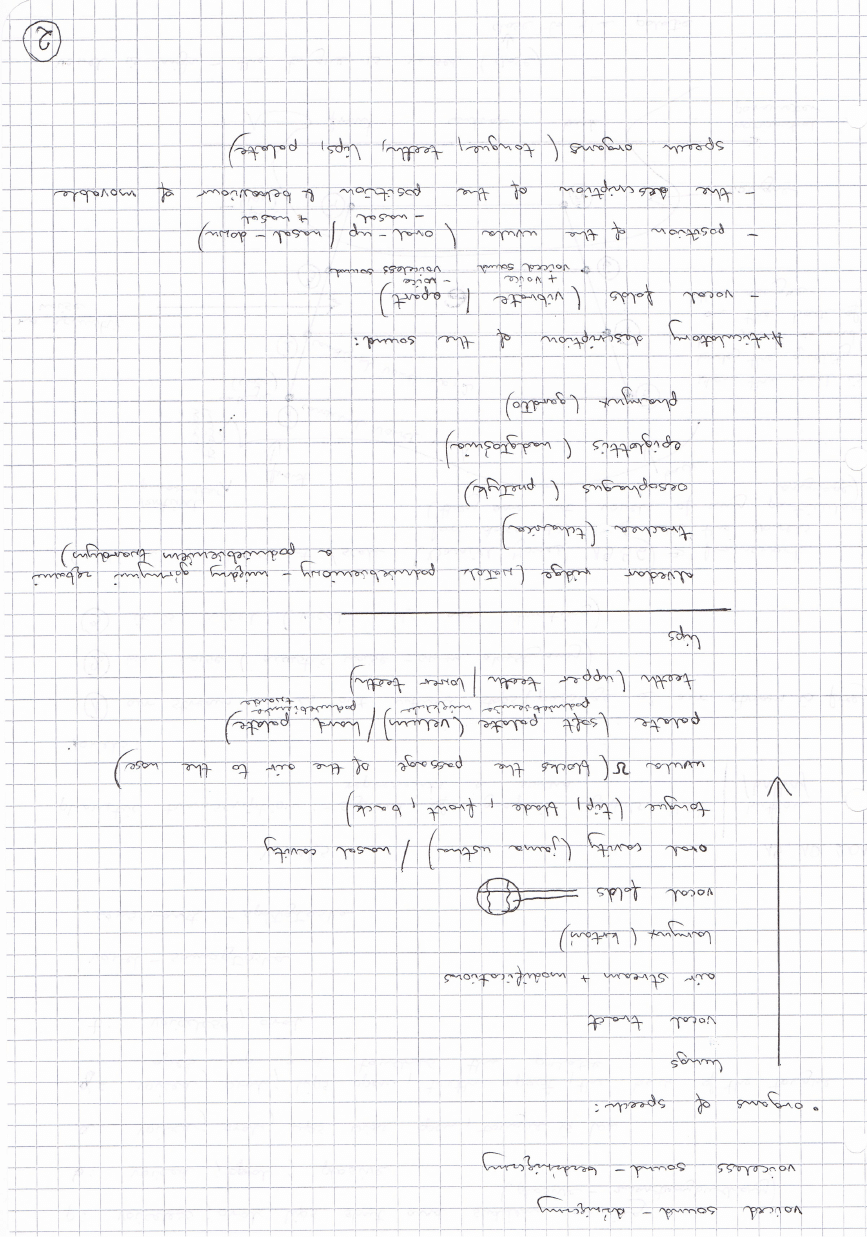 voiced sound - dźwięczny
voiceless sound - bezdźwięczny
• organs of speech:
lungs
vocal tract
air stream + modifications
larynx (krtań)
vocal folds
oral cavity (jama ustna) / nasal cavity
tongue (tip, blade, front, back)
uvula (blocks the passage of the air to the nose)
palate (soft palate (velum) / hard palate)
podniebienie miękkie podniebienie twarde
teeth (upper teeth / lower teeth)
lips
alveolar ridge (wałek podniebieniowy - między górnymi zębami
a podniebieniem twardym)
trachea (tchawica)
oesophagus (przełyk)
epiglottis (nadgłośnia)
pharynx (gardło)
Articulatory description of the sound:
- vocal folds (vibrate / apart)
+ voice - voice
• voiced sound voiceless sound
- position of the uvula (oral - up / nasal - down)
- nasal + nasal
- the description of the position & behaviour of movable
speech organs (tongue, teeth, lips, palate)
2